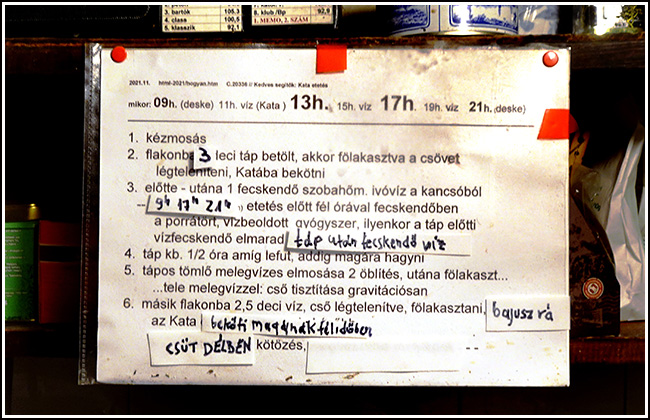 3. bartók 105,3
4. class 100,5
5. klasszik 92,1
8. klub /0p 92,9
1. MEMO, 2. SZÁM
2021.11. html-2021/hogyan.htm C.20336 // Kedves segítők: Kata etetés
mikor: 09h. (deske) 11h. víz (Kata ) 13h. 15h. víz 17h. 19h. víz 21h. deske)
1. kézmosás
2. flakonba 3 leci táp betölt, akkor fölakasztva a csövet
légteleníteni, Katába bekötni
3. előtte - utána 1 fecskendő szobahőm. ivóvíz a kancsóból
9h 17h 21h etetés előtt fél órával fecskendőben
a porrátört, vízbeoldott gyógyszer, ilyenkor a táp előtti
vízfecskendő elmarad táp után fecskendő víz
4. táp kb. 1/2 óra amíg lefut, addig magára hagyni
5. tápos tömlő melegvízes elmosása 2 öblítés, utána fölakaszt...
...tele melegvízzel: cső tisztítása gravitációsan
6. másik flakonba 2,5 deci víz, cső légtelenítve, fölakasztani, bajusz rá
az Kata beköti magának
CSÜT DÉLBEN kötözés,